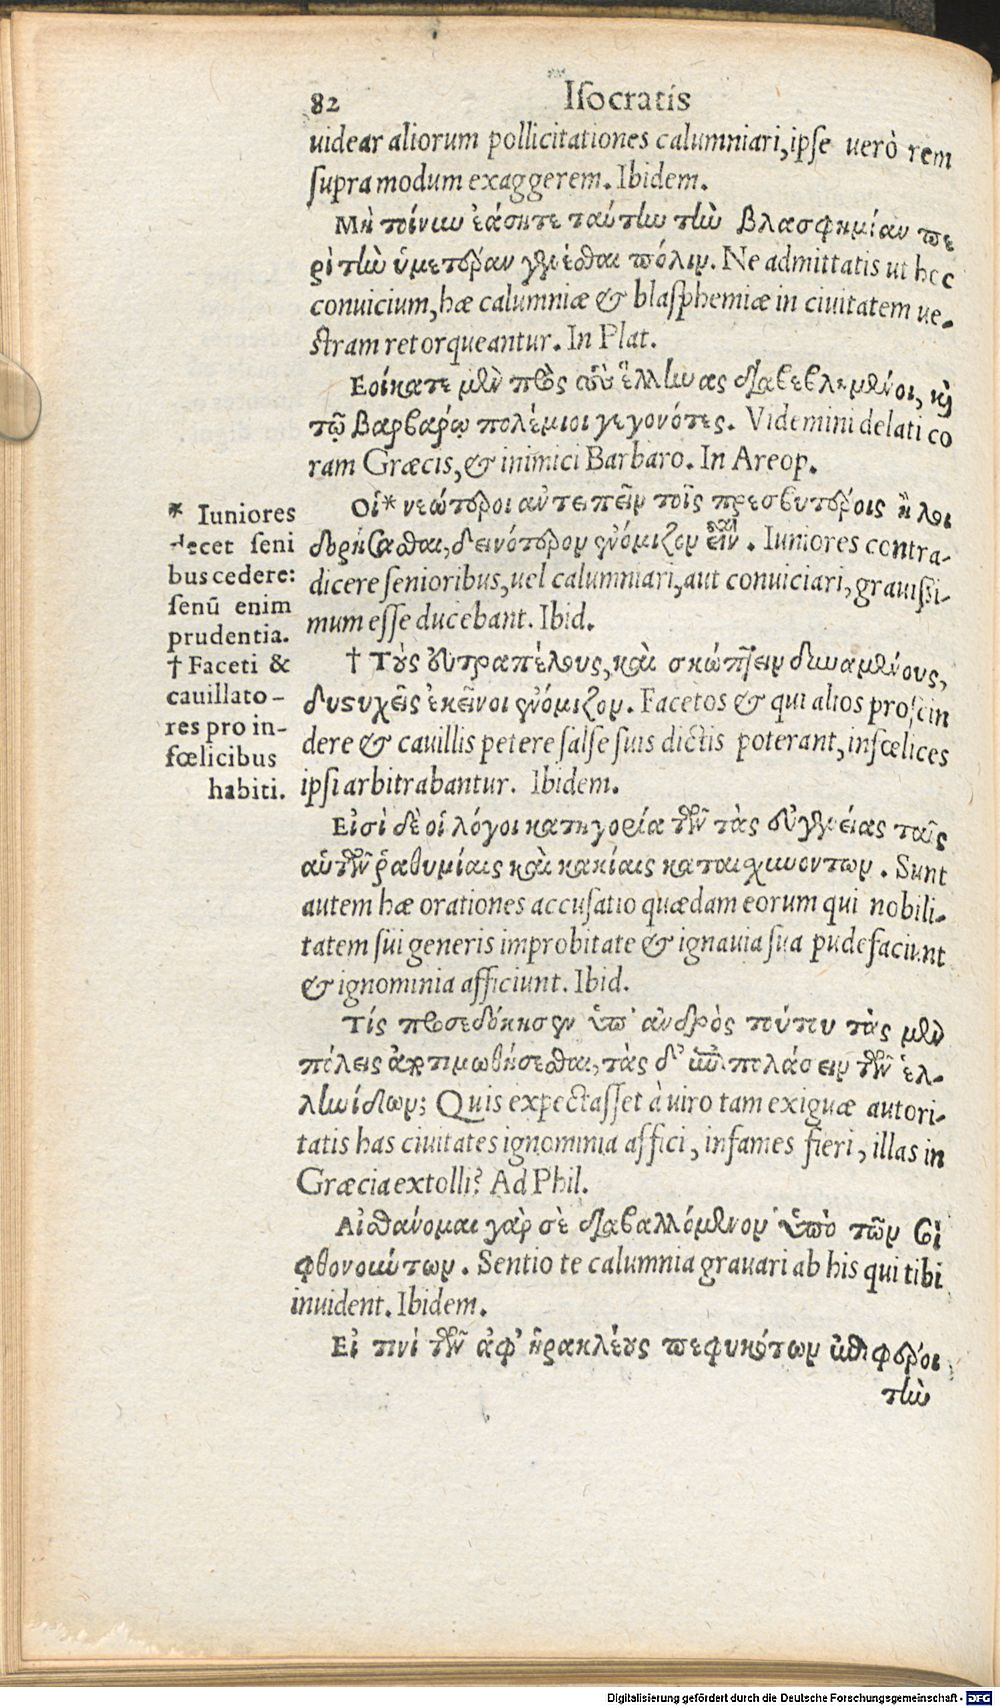 82 Isocratis
uidear aliorum pollicitationes calumniari, ipse uerò rem
supra modum exaggerem. Ibidem.
Μὴ τοίνυν ἐάσητε ταύτην τὴν βλασφημίαν πε
ρὶ τὴν ὑμετέραν γενέσθαι πόλιν. Ne admittatis ut hec
conuicium, hæ calumniæ & blasphemiæ in ciuitatem ue-
stram retorqueantur. In Plat.
Εοίκατε μὲν πρὸς τοὺς ἕλληνας διαβεβλημένοι, καὶ
τῷ Βαρβάρῳ πολέμιοι γεγονότες. Videmini delati co
ram Græcis, & inimici Barbaro. In Areop.
Οἱ* νεώτεροι ἀντειπεῖν τοῖς πρεσβυτέροις ἢ λοι
δορήσασθαι, δεινότερον ἐνόμιζον εἶναι. Iuniores contra-
dicere senioribus, uel calumniari, aut conuiciari, grauissi-
mum esse ducebant. Ibid.
† Τοὺς εὐτραπέλους, καὶ σκώπτειν δυναμένους,
δυστυχεῖς ἐκεῖνοι ἐνόμιζον. Facetos & qui alios proscin
dere & cauillis petere salse suis dictis poterant, infœlices
ipsi arbitrabantur. Ibidem.
Εἰσὶ δὲ οἱ λόγοι κατηγορία τῶν τὰς εὐγενείας ταῖς
αὑτῶν ῥαθυμίαις καὶ κακίαις καταισχυνόντων. Sunt
autem hæ orationes accusatio quædam eorum qui nobili-
tatem sui generis improbitate & ignauia sua pudefaciunt
& ignominia afficiunt. Ibid.
Τίς προσεδόκησεν ὑπ' ἀνδρὸς τούτου τὰς μὲν
πόλεις ἀτιμωθήσεσθαι, τὰς δ' τῶν ἑλ-
ληνίδων; Quis expectasset à uiro tam exiguæ autori-
tatis has ciuitates ignominia affici, infames fieri, illas in
Græcia extolli? Ad Phil.
Αἰσθάνομαι γάρ σὲ διαβαλλόμενον ὑπὸ τῶν σοὶ
φθονούντων. Sentio te calumnia grauari ab his qui tibi
inuident. Ibidem.
Εἰ τινὶ τῶν ἀφ' ἡρακλέους πεφυκότων ἐπιφέροι
τὴν
* Iuniores
decet seni
bus cedere:
senū enim
prudentia.
† Faceti &
cauillato-
res pro in-
fœlicibus
habiti.
Digitalisierung gefördert durch die Deutsche Forschungsgemeinschaft - DFG